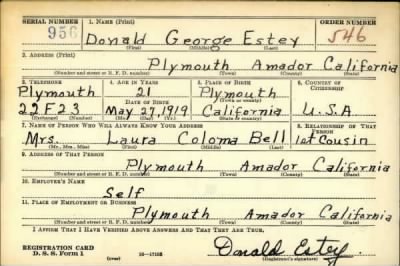 SERIAL NUMBER 1. NAME (Print) ORDER NUMBER
956 Donald George Estey 546
(First) (Middle) (Last)
2. ADDRESS (Print)
Plymouth Amador California
(Number and street or R. F. D. number) (Town) (County) (State)
3. TELEPHONE 4. AGE IN YEARS 5. PLACE OF BIRTH 6. COUNTRY OF CITIZENSHIP
Plymouth 21 Plymouth
DATE OF BIRTH (Town or county)
22F23 May 27, 1919 California U.S.A
(Exchange) (Number) (Mo.) (Day) (Yr.) (State or country)
7. NAME OF PERSON WHO WILL ALWAYS KNOW YOUR ADDRESS 8. RELATIONSHIP OF THAT PERSON
Mrs. Laura Coloma Bell 1st Cousin
(Mr., Mrs., Miss) (First) (Middle) (Last)
9. ADDRESS OF THAT PERSON
Plymouth Amador California
(Number and street or R. F. D. number) (Town) (County) (State)
10. EMPLOYER'S NAME
Self
11. PLACE OF EMPLOYMENT OR BUSINESS
Plymouth Amador California
(Number and street or R. F. D. number) (Town) (County) (State)
I AFFIRM THAT I HAVE VERIFIED ABOVE ANSWERS AND THAT THEY ARE TRUE.
REGISTRATION CARD
D. S. S. Form 1 Donald Estey
(Registrant's signature)